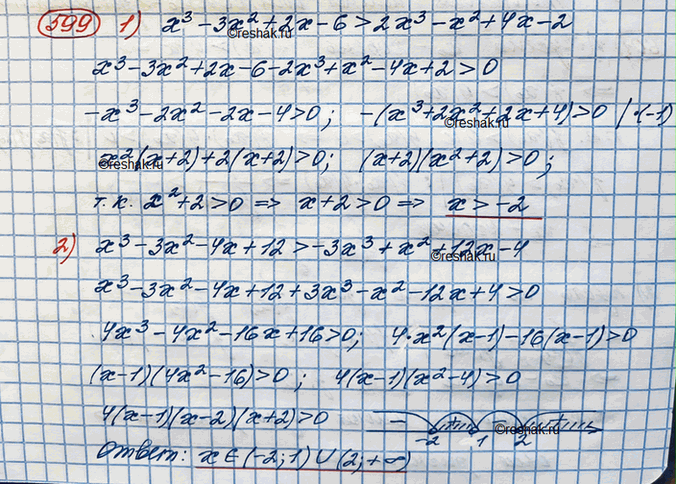 599 1) x³-3x²+2x-6>2x³-x²+4x-2
©reshak.ru
x³-3x²+2x-6-2x³+x²-4x+2>0
-x³-2x²-2x-4>0; -(x³+2x²+2x+4)>0 |·(-1)
©reshak.ru
x²(x+2)+2(x+2)>0; (x+2)(x²+2)>0;
©reshak.ru
т.к. x²+2>0 => x+2>0 => x>-2
2) x³-3x²-4x+12>-3x³+x²+12x-4
©reshak.ru
x³-3x²-4x+12+3x³-x²-12x+4>0
4x³-4x²-16x+16>0; 4·x²(x-1)-16(x-1)>0
(x-1)(4x²-16)>0; 4(x-1)(x²-4)>0
4(x-1)(x-2)(x+2)>0 - + - +
©reshak.ru
-2 1 2
Ответ: x∈(-2;1)∪(2;+∞)